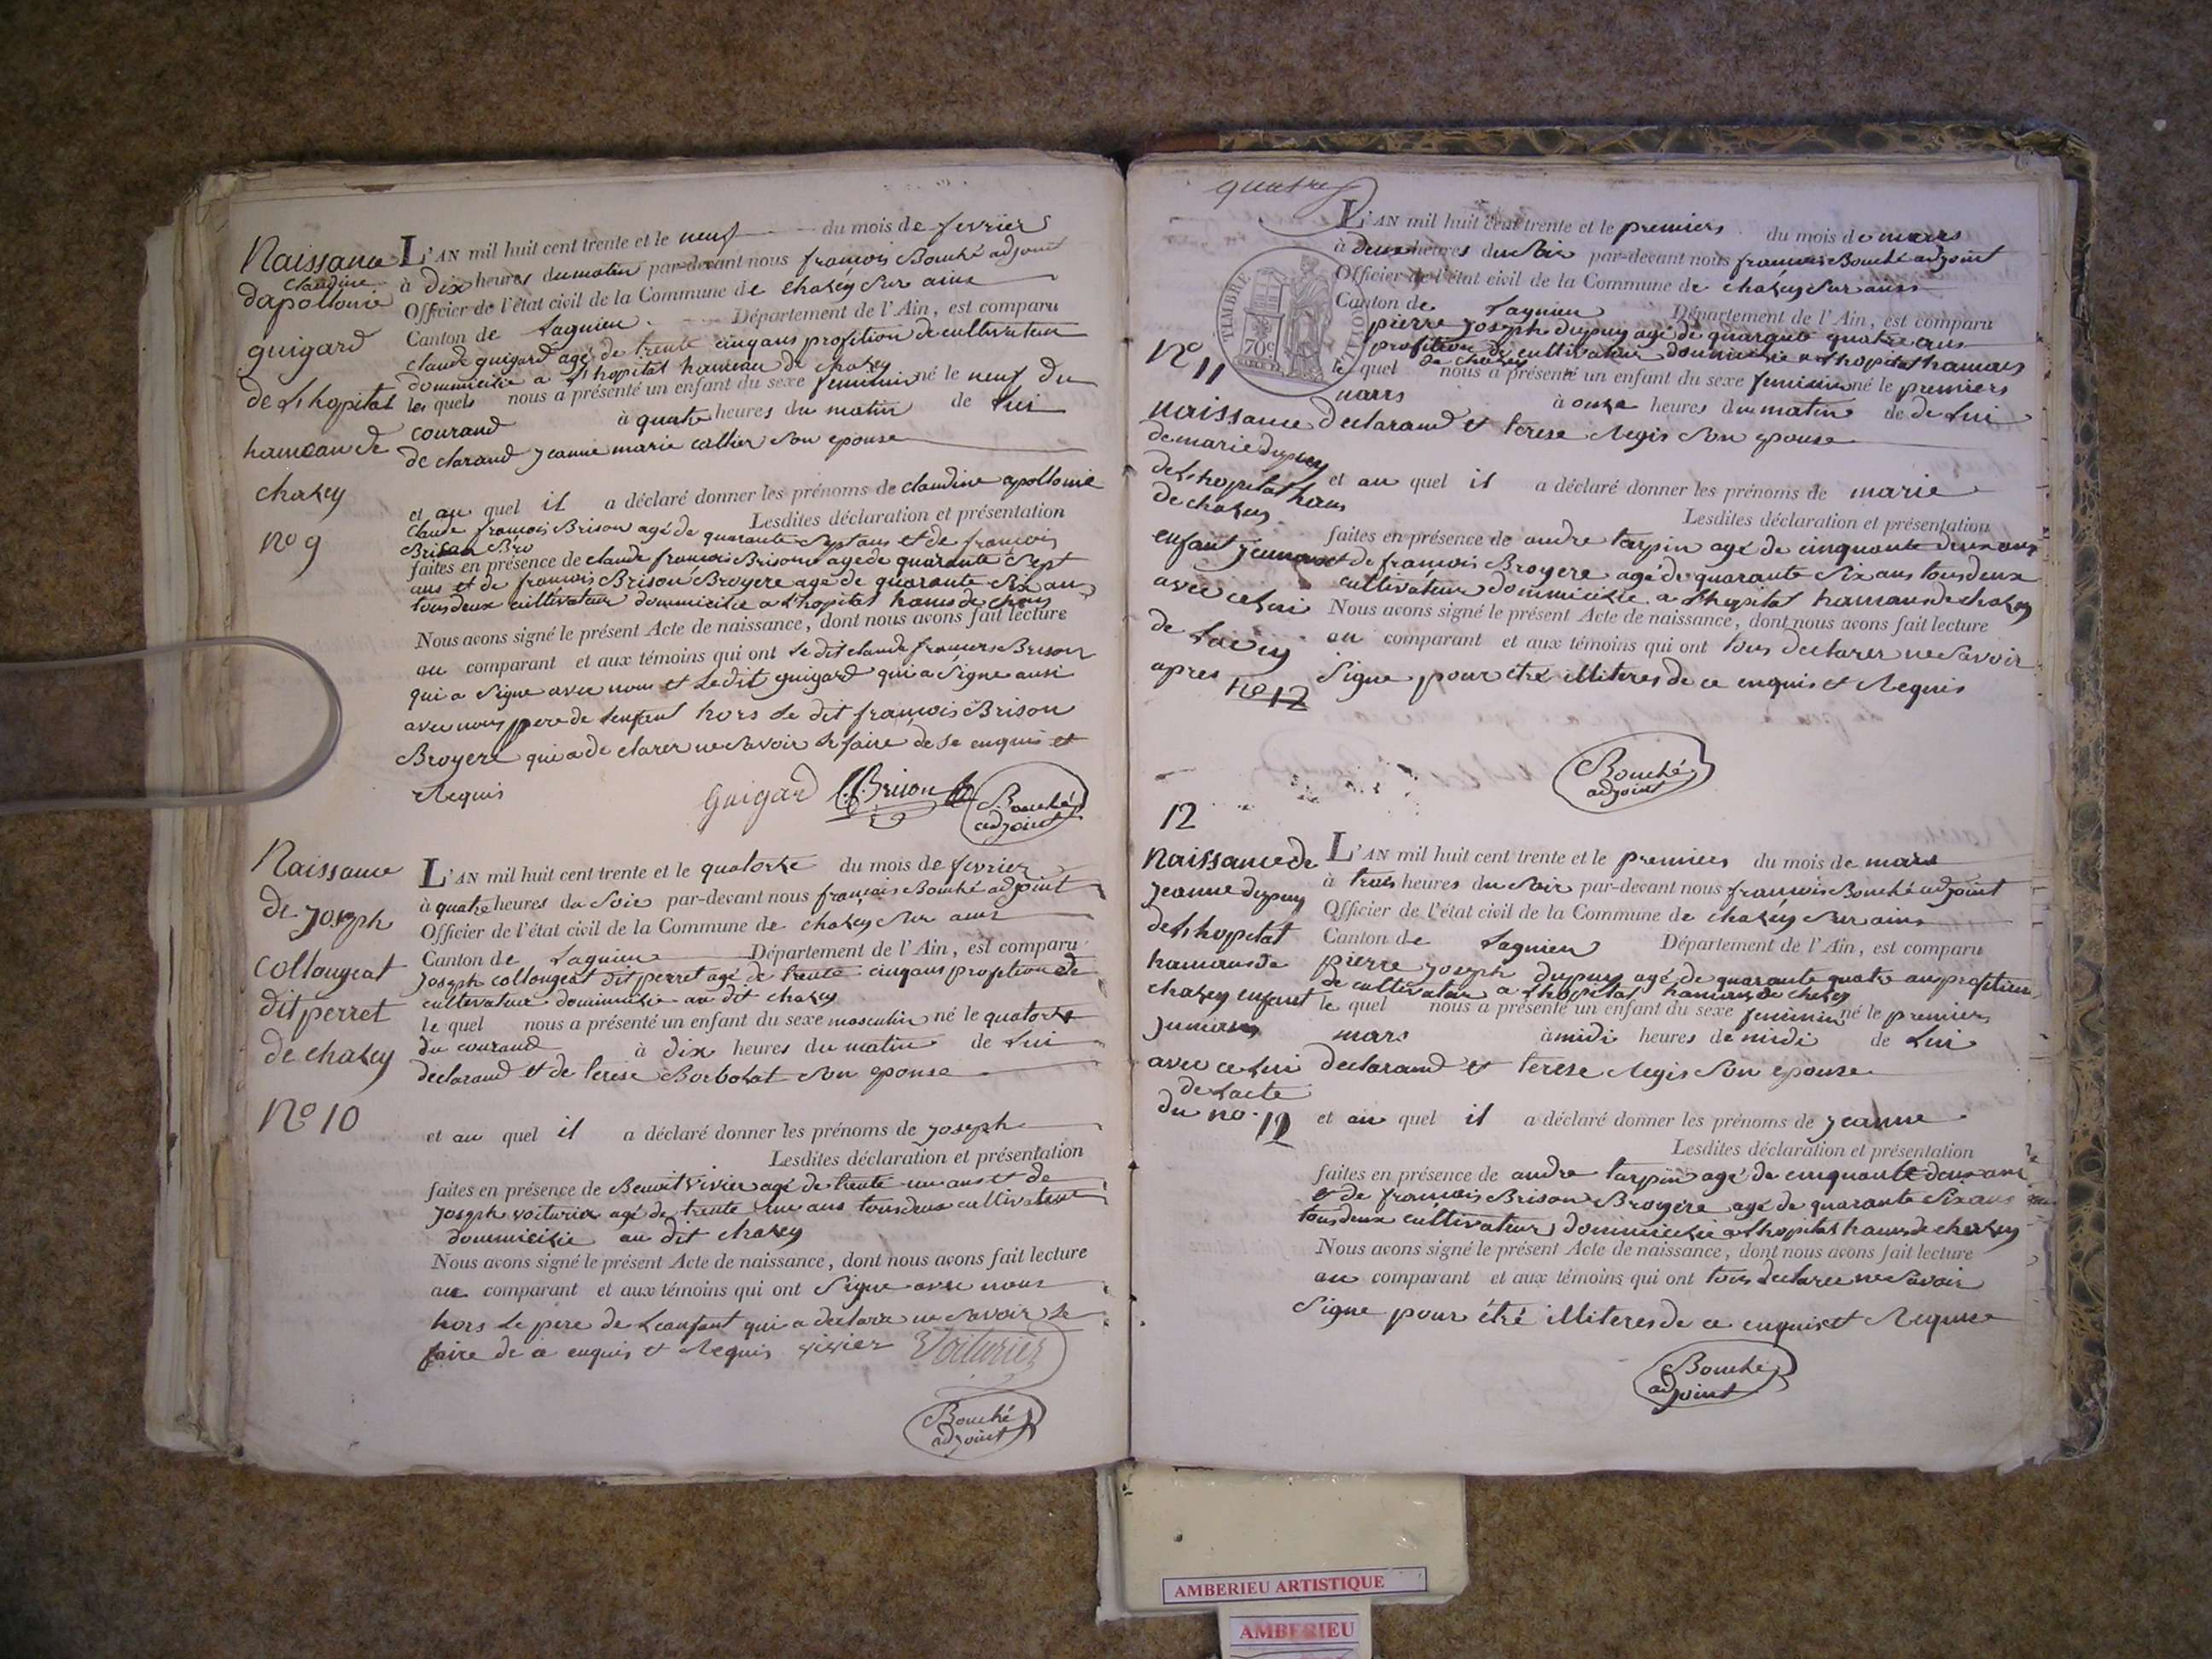 Naissance
claudine
dapollonie
guigard
de Lhopital
hameau de
chazey
no 9
L'AN mil huit cent trente et le neuf du mois de fevrier
à dix heures du matin par-devant nous francois Bouché adjoint
Officier de l'état civil de la Commune de chazey Sur ains
Canton de Lagnieu Département de l'Ain, est comparu
claude guigard agé de trente cinq ans profition de cultivateur
dommicilie a Lhopital hameau de chazey
les quels nous a présenté un enfant du sexe feminin né le neuf du
courand à quatre heures du matin de Lui
de clarand jeanne marie cellier Son epouse
et au quel il a déclaré donner les prénoms de claudine apollonie
Lesdites déclaration et présentation
claude francois Brison agé de quarante Sept ans et de francois
Brison Bro
faites en présence de claude francois Brison agé de quarante Sept
ans et de francois Brison Broyere agé de quarante Six ans
tous deux cultivateur dommicilie a Lhopital hams de chazey
Nous avons signé le présent Acte de naissance, dont nous avons fait lecture
au comparant et aux témoins qui ont Le dit claude francois Brison
qui a Signe avec nous et Ledit guigard qui a Signe ausi
avec nous pere de Lenfant hors Le dit francois Brison
Broyere qui a de clarer ne Savoir Le faire de Se enquis et
Requis
Guigard C.f.Brison Bouché
adjoint
Naissance
de joseph
collougeat
dit perret
de chazey
No 10
L'AN mil huit cent trente et le quatorze du mois de fevrier
à quatre heures du Soir par-devant nous françois Bouché adjoint
Officier de l'état civil de la Commune de chazey Sur ains
Canton de Lagnieu Département de l'Ain, est comparu
joseph collougeat dit perret agé de trente cinq ans profition de
cultivateur dommicilie au dit chazey
le quel nous a présenté un enfant du sexe masculin né le quatorze
du courand à dix heures du matin de Lui
declarand et de terese Borbolat Son epouse
et au quel il a déclaré donner les prénoms de joseph
Lesdites déclaration et présentation
faites en présence de Benoit vivier agé de trente un ans et de
joseph voiturier agé de trente un ans tous deux cultivateur
dommicilie au dit chazey
Nous avons signé le présent Acte de naissance, dont nous avons fait lecture
au comparant et aux témoins qui ont Signe avec nous
hors Le pere de Leanfant qui a declare ne Savoir Le
faire de ce enquis et Requis vivier Voiturier
Bouché
adjoint
quatre
TIMBRE
70c
No 11
naissance
de marie dupuy
de Lhopital ham
de chazey
enfant jumaux
avec celui
de Lacte
apres
no 12
L'AN mil huit cent trente et le premiers du mois de mars
à deux heures du Soir par-devant nous francois Bouché adjoint
Officier de l'état civil de la Commune de chazey Sur ains
Canton de Lagnieu Département de l'Ain, est comparu
pierre joseph dupuy agé de quarante quatre ans
profition de cultivateur dommicilie a Lhopital hamaus
de chazey
le quel nous a présenté un enfant du sexe feminin né le premiers
mars à onze heures du matin de de Lui
declarand et terese Regis Son epouse
et au quel il a déclaré donner les prénoms de marie
Lesdites déclaration et présentation
faites en présence de andre tarpin agé de cinquante deux ans
et de francois Broyere agé de quarante Six ans tous deux
cultivateur dommicilie a Lhopital hamaus de chazey
Nous avons signé le présent Acte de naissance, dont nous avons fait lecture
au comparant et aux témoins qui ont tous declarer ne Savoir
Signe pour étré illiteres de ce enquis et Requis
Bouché
adjoint
12
Naissance de
jeanne dupuy
de Lhopital
hamaus de
chazey enfant
jumaus
avec celui
de Lacte
du no. 12
L'AN mil huit cent trente et le premiers du mois de mars
à trois heures du Soir par-devant nous francois Bouché adjoint
Officier de l'état civil de la Commune de chazey Sur ains
Canton de Lagnieu Département de l'Ain, est comparu
pierre joseph dupuy agé de quarante quatre ans profition
de cultivateur a Lhopital hamaus de chazey
le quel nous a présenté un enfant du sexe feminin né le premiers
mars à midi heures de midi de Lui
declarand et terese Regis Son epouse
et au quel il a déclaré donner les prénoms de jeanne
Lesdites déclaration et présentation
faites en présence de andre tarpin agé de cinquante deux ans
et de francois Brison Broyere agé de quarante Six ans
tous deux cultivateur dommicilie a Lhopital hams de chazey
Nous avons signé le présent Acte de naissance, dont nous avons fait lecture
au comparant et aux témoins qui ont tous declarer ne Savoir
Signe pour étré illiteres de ce enquis et Requise
Bouché
adjoint
AMBERIEU ARTISTIQUE
AMBERIEU